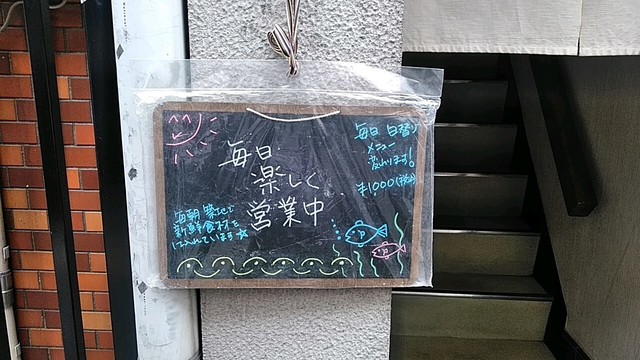 毎日
楽しく
営業中
毎日 日替り
メニュー
変わります!
¥1000(税込)
毎朝 築地で
新鮮食材を
仕入れています☆